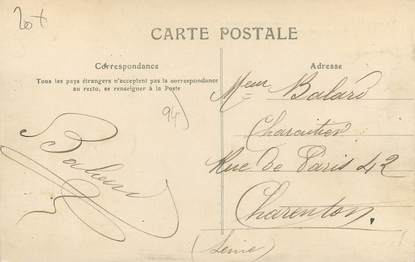 20+
CARTE POSTALE
Correspondance
Tous les pays étrangers n'acceptent pas la correspondance
au recto, se renseigner à la Poste
94)
Balard
Adresse
Meur Balard
Charcutier
Rue de Paris 42
Charenton.
(Seine)